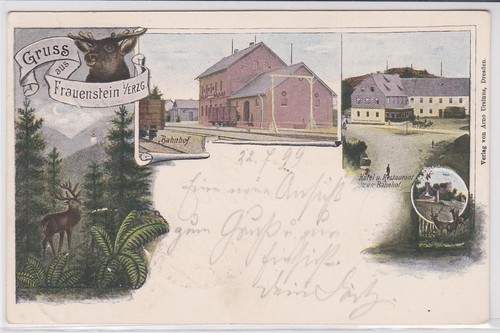 Gruss
aus
Frauenstein i/ERZG.
Bahnhof.
Hotel u. Restaurant
zum Bahnhof.
Verlag von Arno Ursinus, Dresden.
22. 7. 99
Eine neue Ansicht
zum Gruß u. zur
Dein